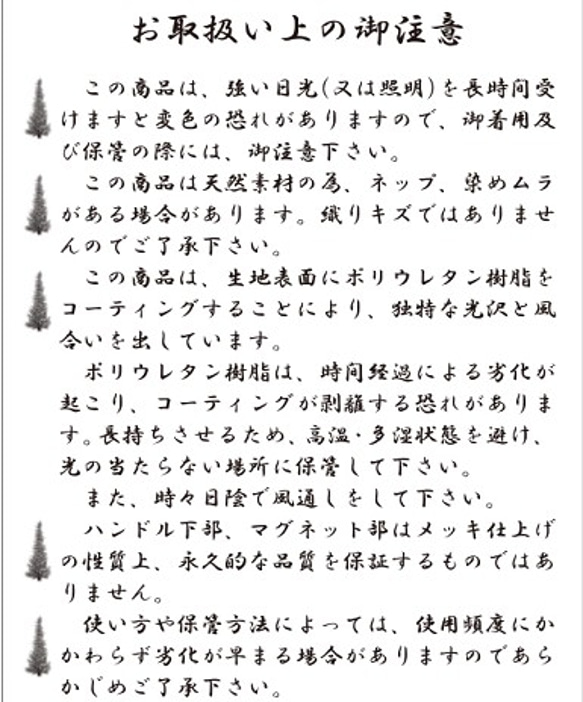 お取扱い上の御注意
この商品は、強い日光(又は照明)を長時間受
けますと変色の恐れがありますので、御着用及
び保管の際には、御注意下さい。
この商品は天然素材の為、ネップ、染めムラ
がある場合があります。織りキズではありませ
んのでご了承下さい。
この商品は、生地表面にポリウレタン樹脂を
コーティングすることにより、独特な光沢と風
合いを出しています。
ポリウレタン樹脂は、時間経過による劣化が
起こり、コーティングが剥離する恐れがありま
す。長持ちさせるため、高温・多湿状態を避け、
光の当たらない場所に保管して下さい。
また、時々日陰で風通しをして下さい。
ハンドル下部、マグネット部はメッキ仕上げ
の性質上、永久的な品質を保証するものではあ
りません。
使い方や保管方法によっては、使用頻度にか
かわらず劣化が早まる場合がありますのであら
かじめご了承下さい。